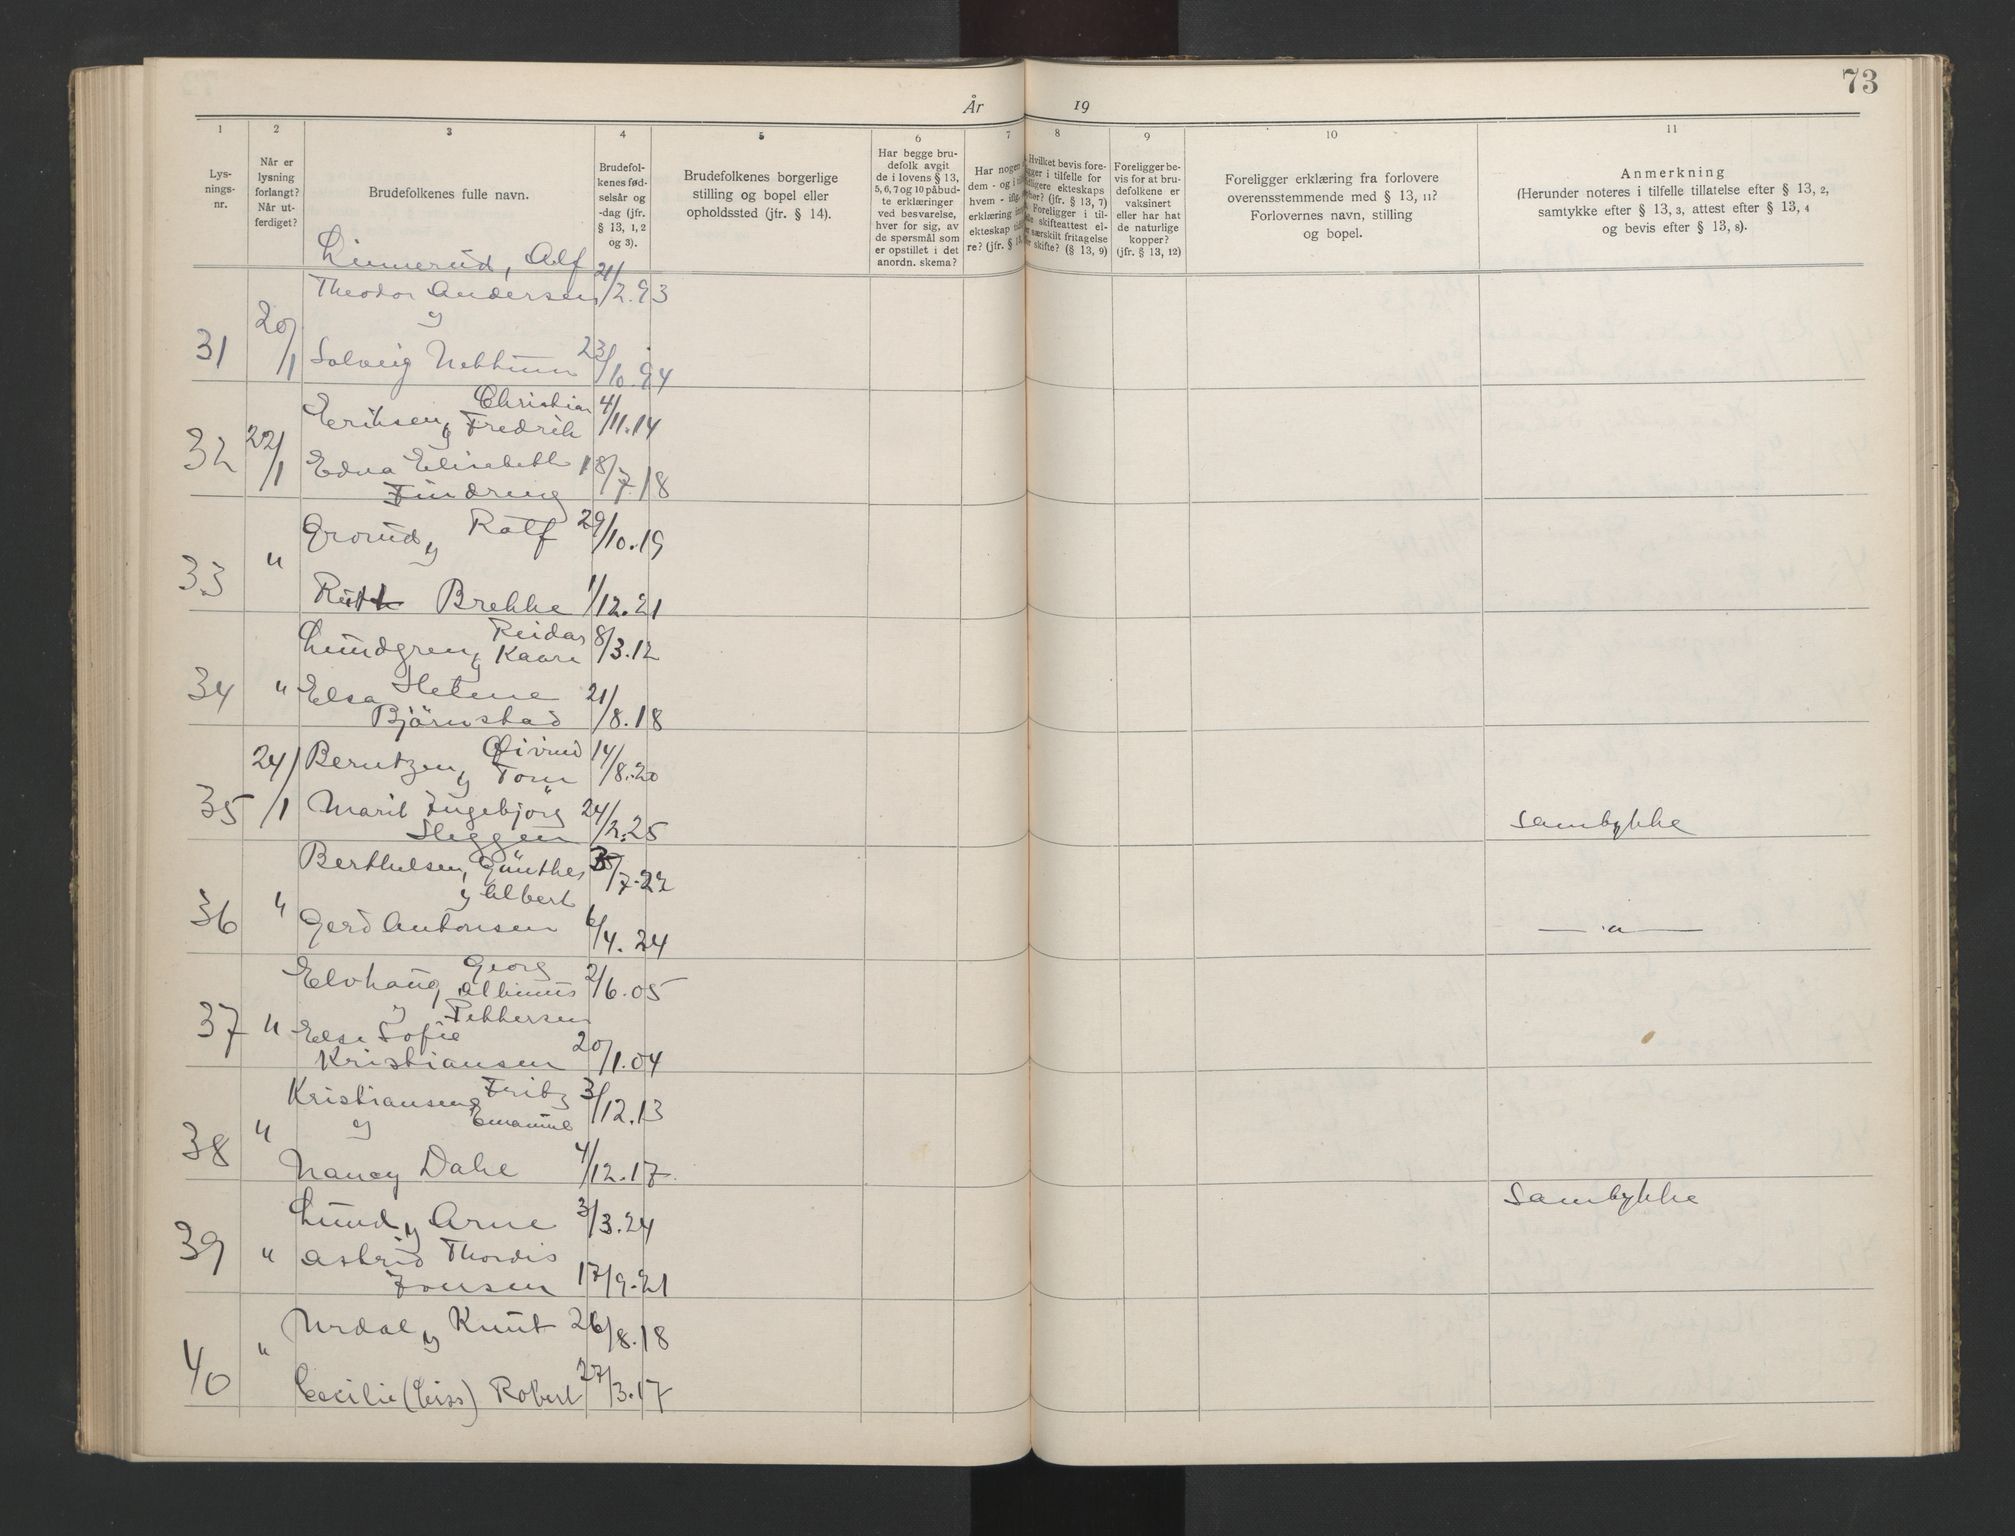 73
År 19
1 2 3 4 5 6 7 8 9 10 11
Lysnings-nr.
Når er lysning forlangt? Når utferdiget?
Brudefolkenes fulle navn.
Brudefolkenes fødselsår og -dag (jfr. § 13, 1, 2 og 3).
Brudefolkenes borgerlige stilling og bopel eller opholdssted (jfr. § 14).
Har begge brudefolk avgit de i lovens § 13, 5, 6, 7 og 10 påbudte erklæringer ved besvarelse, hver for sig, av de spørsmål som er opstillet i det anordn. skema?
Har nogen dem - og i hvem - iflg. erklæring ekteskap re? (jfr. § 13
Hvilket bevis foreligger i tilfelle for tidligere ekteskaps (jfr. § 13, 7) Foreligger i tilfelle skifteattest eller særskilt fritagelse skifte? (§ 13, 9)
Foreligger bevis for at brudefolkene er vaksinert eller har hat de naturlige kopper? (jfr. § 13, 12)
Foreligger erklæring fra forlovere overensstemmende med § 13, 11? Forlovernes navn, stilling og bopel.
Anmerkning
(Herunder noteres i tilfelle tillatelse efter § 13, 2, samtykke efter § 13, 3, attest efter § 13, 4 og bevis efter § 13, 8).
Linnerud, Alf 21/2.93
Theodor Andersen
y
31 20/1 Solveig Nettum 23/10.94
Eriksen, Christian Fredrik 4/11.14
y
32 22/1 Edna Elisabeth 18/7.18
Findreng
Grorud, Rolf 29/10.19
y
33 " Ruth Brekke 1/12.21
Lundgren, Reidar Kaare 8/3.12
y
34 " Elsa Helene 21/8.18
Björnstad
24/1 Berntzen, Øivind Tom 14/8.20
y
35 Marit Ingebjörg 24/2.25 Samtykke
Heggen
Berthelsen, Günther /7.22
y Albert
36 " Gerd Antonsen 6/4.24 — " —
Elvhaug, Georg Albinus 2/6.05
y Pettersen
37 " Else Sofie
Kristiansen 20/1.04
Kristiansen, Fritz 3/12.13
y Emanuel
38 " Nancy Dahl 4/12.17
Lund, Arne 3/3.24 Samtykke
y
39 " Astrid Thordis
Iversen 17/9.21
Urdal, Knut 26/8.18
y
40 " Cecilie (Ciss) Robert 27/3.17